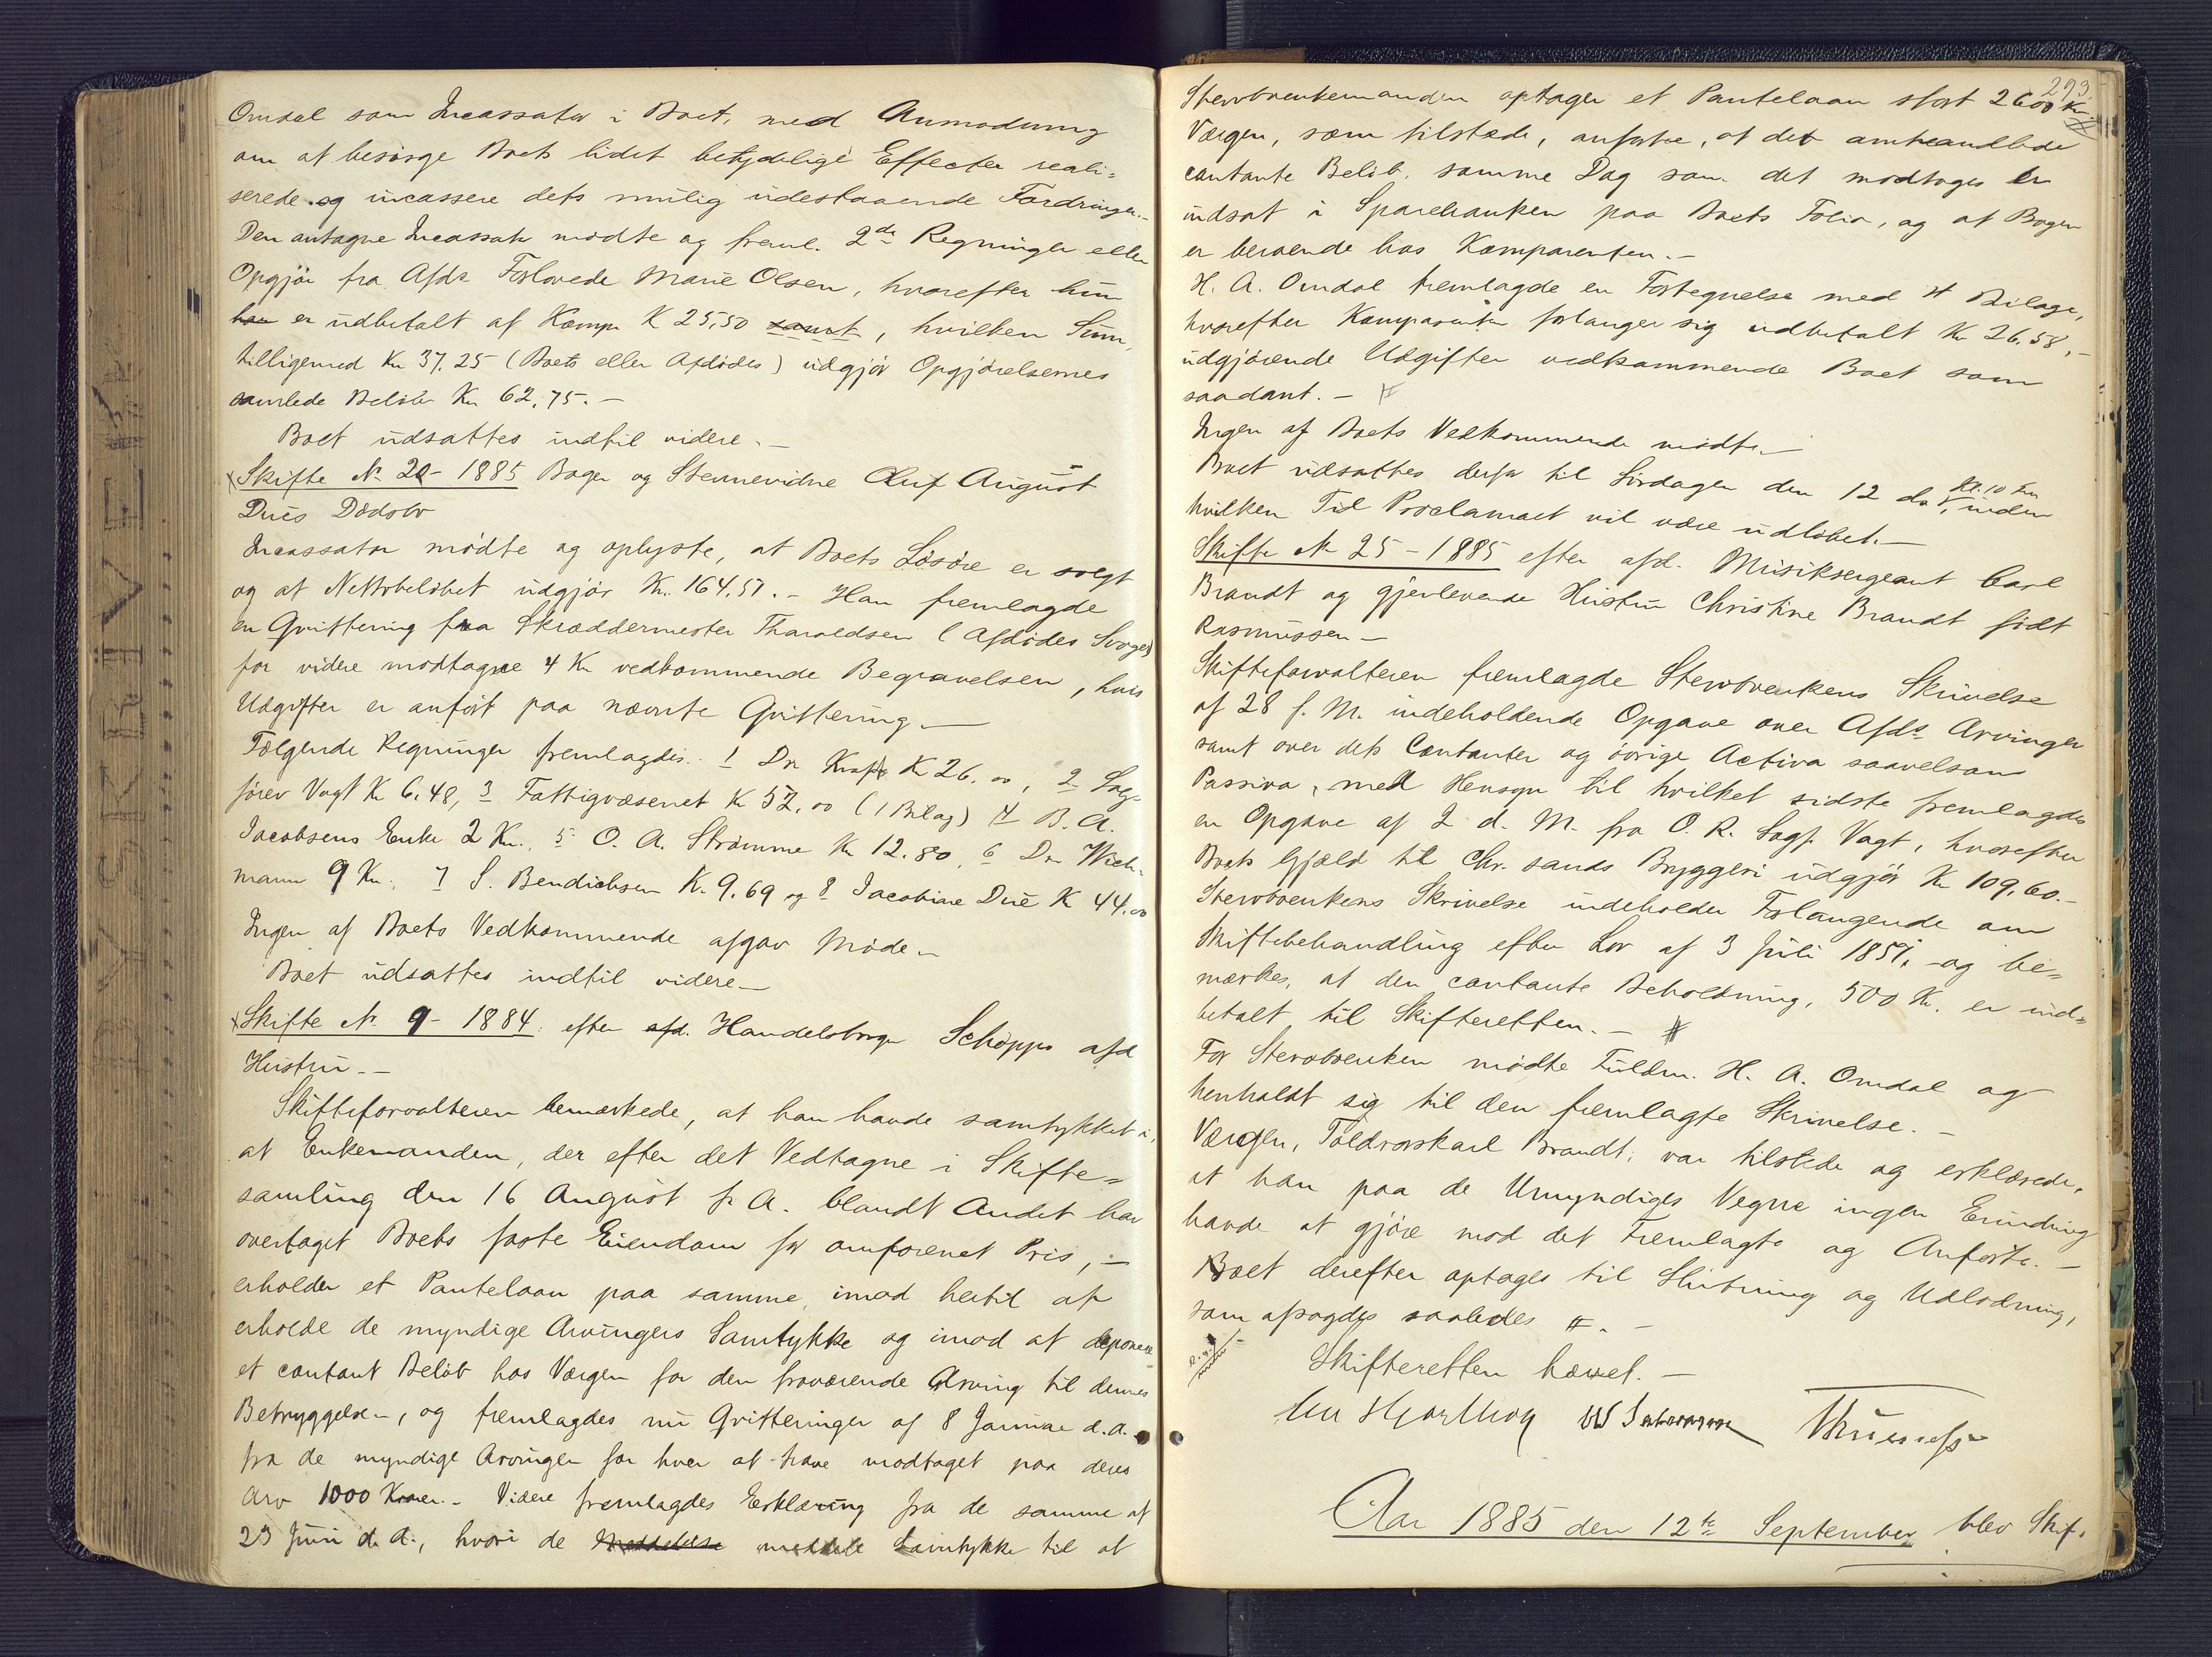 Omdal som Incassator i Boet, med Anmodning
om at besørge Boets lidet betydelige Effecter reali-
serede og incassere dets mulig udestaaende Fordringer.-
Den antagne Incassator mødte og freml. 2de Regninger eller
Opgjør fra Afds Forlovede Marie Olsen, hvorefter hun
han er udbetalt af Komp. K 25,50 samt, hvilken Sum,
tilligemed Kr 37.25 (Boets eller Afdødes) udgjør Opgjørelsernes
samlede Beløb Kr. 62,75.-
Boet udsattes indtil videre.-
Skifte No 20- 1885 Bager og Stevnevidne Oluf August
Dues Dødsbo
Incassator mødte og oplyste, at Boets Løsøre er solgt
og at Nettobeløbet udgjør Kr. 164,57.- Han fremlagde
en Qvittering fra Skræddermester Tharaldsen (Afdødes Svoger)
for videre modtagne 4 Kr vedkommende Begravelsen, hvis
Udgifter er anført paa nævnte Qvittering.-
Følgende Regninger fremlagdes: 1 Dr Kraft K 26.00, 2 Sag-
fører Vogt K 6,48, 3 Fattigvæsenet K 52,00 (1 Bilag) 4 B. A.
Jacobsens Enke 2 Kr., 5 O. A. Strømme Kr 12.80, 6 Dr Wich-
mann 9 Kr., 7 S. Bendichsen K. 9.69 og 8 Jacobine Due K 44,00
Ingen af Boets Vedkommende afgav Møde.-
Boet udsattes indtil videre.-
Skifte No 9- 1884: efter afd. Handelsborger Schøpps afd
Hustru.-
Skifteforvalteren bemærkede, at han havde samtykket i,
at Enkemanden, der efter det Vedtagne i Skifte-
samling den 16 August f. A. blandt Andet har
overtaget Boets faste Eiendom for omforenet Pris, -
erholder et Pantelaan paa samme, imod hertil at
erholde de myndige Arvingers Samtykke og imod at deponere
et contant Beløb hos Værgen for den fraværende Arving til dennes
Betryggelse, og fremlagdes nu Qvitteringer af 8 Januar d.A.
fra de myndige Arvinger for hver at have modtaget paa deres
Arv 1000 Kroner.- Videre fremlagdes Erklæring fra de samme af
23 Juni d. A., hvori de Meddelelse meddele Samtykke til at
293
Stervboenkemanden optager et Pantelaan stort 2600 Kr.
Værgen, som tilstede, anførte, at det omhandlede
contante Beløb, samme Dag som det modtoges er
indsat i Sparebanken paa Boets Folio, og at Bogen
er beroende hos Komparenten.-
H. A. Omdal fremlagde en Fortegnelse med 4 Bilage,
hvorefter Komparenten forlanger sig udbetalt Kr 26,58,-
udgjørende Udgifter vedkommende Boet som
saadant.- #
Ingen af Boets Vedkommende mødte.-
Boet udsattes derfor til Lørdagen den 12 ds, Kl. 10 Fm inden
hvilken Tid Proclamaet vil være udløbet.-
Skifte No 25- 1885 efter afd. Musiksergeant Carl
Brandt og gjenlevende Hustru Christine Brandt født
Rasmussen -
Skifteforvalteren fremlagde Stervboenkens Skrivelse
af 28 f. M. indeholdende Opgave over Afds Arvinger
samt over dets Contanter og øvrige Activa saavelsom
Passiva, med Hensyn til hvilket sidste fremlagdes
en Opgave af 2 d. M. fra O. R. Sagf. Vogt, hvorefter
Boets Gjæld til Chr.sands Bryggeri udgjør Kr 109,60.-
Stervboenkens Skrivelse indeholder Forlangende om
Skiftebehandling efter Lov af 3 Juli 1851, og be-
mærkes, at den contante Beholdning, 500 Kr. er ind-
betalt til Skifteretten.- #
For Stervboenken mødte Fuldm. H. A. Omdal og
henholdt sig til den fremlagte Skrivelse.-
Værgen, Toldrorskarl Brandt, var tilstede og erklærede,
at han paa de Umyndiges Vegne ingen Erindring
havde at gjøre mod det Fremlagte og Anførte.-
Boet derefter optoges til Slutning og Udlodning,
som afsagdes saaledes #.-
Skifteretten hævet.-
Aar 1885 den 12te September blev Skif-